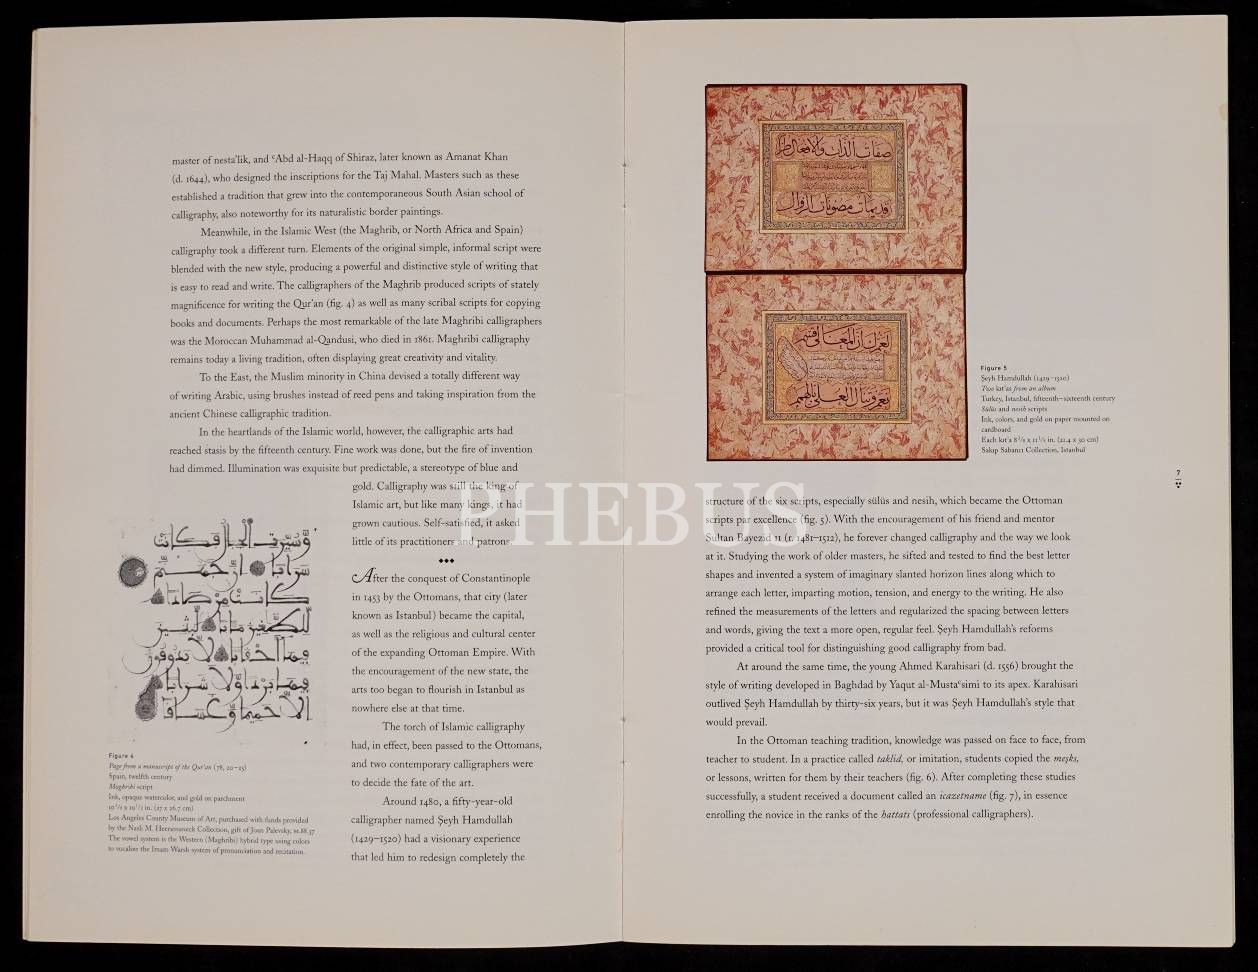 master of nesta'lik, and ʿAbd al-Haqq of Shiraz, later known as Amanat Khan
(d. 1644), who designed the inscriptions for the Taj Mahal. Masters such as these
established a tradition that grew into the contemporaneous South Asian school of
calligraphy, also noteworthy for its naturalistic border paintings.
Meanwhile, in the Islamic West (the Maghrib, or North Africa and Spain)
calligraphy took a different turn. Elements of the original simple, informal script were
blended with the new style, producing a powerful and distinctive style of writing that
is easy to read and write. The calligraphers of the Maghrib produced scripts of stately
magnificence for writing the Qur'an (fig. 4) as well as many scribal scripts for copying
books and documents. Perhaps the most remarkable of the late Maghribi calligraphers
was the Moroccan Muhammad al-Qandusi, who died in 1861. Maghribi calligraphy
remains today a living tradition, often displaying great creativity and vitality.
To the East, the Muslim minority in China devised a totally different way
of writing Arabic, using brushes instead of reed pens and taking inspiration from the
ancient Chinese calligraphic tradition.
In the heartlands of the Islamic world, however, the calligraphic arts had
reached stasis by the fifteenth century. Fine work was done, but the fire of invention
had dimmed. Illumination was exquisite but predictable, a stereotype of blue and
gold. Calligraphy was still the king of
Islamic art, but like many kings, it had
grown cautious. Self-satisfied, it asked
little of its practitioners and patrons.
After the conquest of Constantinople
in 1453 by the Ottomans, that city (later
known as Istanbul) became the capital,
as well as the religious and cultural center
of the expanding Ottoman Empire. With
the encouragement of the new state, the
arts too began to flourish in Istanbul as
nowhere else at that time.
The torch of Islamic calligraphy
had, in effect, been passed to the Ottomans,
and two contemporary calligraphers were
to decide the fate of the art.
Around 1480, a fifty-year-old
calligrapher named Şeyh Hamdullah
(1429–1520) had a visionary experience
that led him to redesign completely the
وسيرت الجبال فكانت
سرابا ان جهنم
كانت مرصادا
للطغين مابا لبثين
فيها احقابا لا يذوقون
فيها بردا ولا شرابا
الا حميما وغساقا
Figure 4
Page from a manuscript of the Qur'an (78, 20–25)
Spain, twelfth century
Maghribi script
Ink, opaque watercolor, and gold on parchment
10 5/8 x 10 1/2 in. (27 x 26.7 cm)
Los Angeles County Museum of Art, purchased with funds provided
by the Nasli M. Heeramaneck Collection, gift of Joan Palevsky,
The vowel system is the Western (Maghribi) hybrid type using colors
to vocalize the Imam Warsh system of pronunciation and recitation.
صفات الذات والافعال طرا
قديمات مصونات الزوال
Figure 5
Şeyh Hamdullah (1429–1520)
Two kıt'as from an album
Turkey, Istanbul, fifteenth–sixteenth century
Sülüs and nesih scripts
Ink, colors, and gold on paper mounted on
cardboard
Each kıt'a 8 3/8 x 11 3/4 in. (21.4 x 30 cm)
Sakıp Sabancı Collection, Istanbul
7
structure of the six scripts, especially sülüs and nesih, which became the Ottoman
scripts par excellence (fig. 5). With the encouragement of his friend and mentor
Sultan Bayezid II (r. 1481–1512), he forever changed calligraphy and the way we look
at it. Studying the work of older masters, he sifted and tested to find the best letter
shapes and invented a system of imaginary slanted horizon lines along which to
arrange each letter, imparting motion, tension, and energy to the writing. He also
refined the measurements of the letters and regularized the spacing between letters
and words, giving the text a more open, regular feel. Şeyh Hamdullah's reforms
provided a critical tool for distinguishing good calligraphy from bad.
At around the same time, the young Ahmed Karahisari (d. 1556) brought the
style of writing developed in Baghdad by Yaqut al-Mustaʿsimi to its apex. Karahisari
outlived Şeyh Hamdullah by thirty-six years, but it was Şeyh Hamdullah's style that
would prevail.
In the Ottoman teaching tradition, knowledge was passed on face to face, from
teacher to student. In a practice called taklid, or imitation, students copied the meşks,
or lessons, written for them by their teachers (fig. 6). After completing these studies
successfully, a student received a document called an icazetname (fig. 7), in essence
enrolling the novice in the ranks of the hattats (professional calligraphers).
PHEBUS